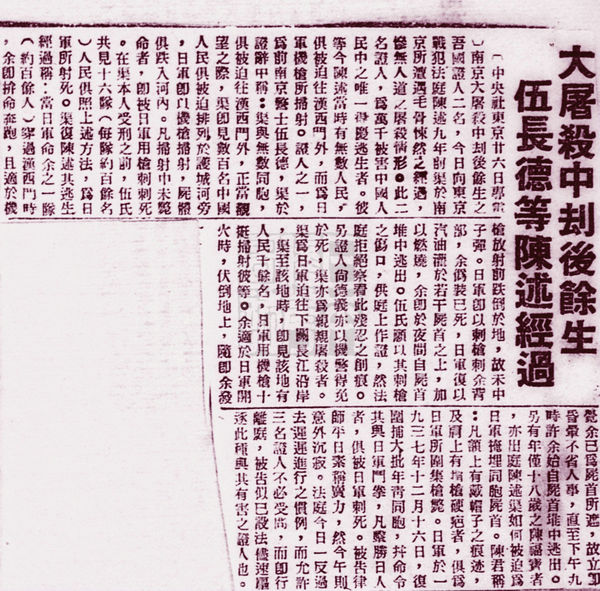 大屠殺中刦後餘生
伍長德等陳述經過
（中央社東京廿六日專電
）南京大屠殺刦後餘生之
吾國證人二名，今日向東京
戰犯法庭陳述九年前渠於南
京所遭遇毛骨悚然之經過，
慘無人道之屠殺情形。此二
名證人，為萬千被害中國人
民中之唯一得慶逃生者。彼
等今陳述當時有無數人民，
俱被迫往漢西門外，而為日
軍機槍所掃射。證人之一，
為前南京警士伍長德，渠於
證辭中稱：渠與無數同胞，
俱被迫往漢西門外，正當觀
望之際，渠即見數百名中國
人民俱被迫排列於護城河旁
，日軍即以機槍掃射，屍體
俱跌入河內。凡掃射中未斃
命者，即被日軍用槍刺刺死
。在渠本人受刑之前，伍氏
共見十六隊（每隊約百餘名
）人民俱照上述方法，為日
軍所射死。渠復陳述其逃生
經過稱：當日軍命余之一隊
（約百餘人）穿過漢西門時
，余即拚命奔跑，且適於機
槍放射前跌倒於地，故未中
子彈。日軍即以刺槍刺余背
部，余僞裝已死，日軍復以
汽油澆於若干屍首之上，加
以燃燒，余即於夜間自屍首
堆中逃出。伍氏願以其刺槍
之傷口，供庭上作證，然法
庭拒絕察看此殘忍之創痕。
另證人尚德義亦以機警得免
於死，渠亦為親親屠殺者。
渠為日軍迫往下關長江沿岸
，渠至該地時，即見該地有
人民千餘名，日軍用機槍十
挺掃射彼等。余適於日軍開
火時，伏倒地上，隨即余發
覺余已為屍首所遮，故立即
昏暈不省人事，直至下午九
時許余始自屍首堆中逃出。
另有年僅十八歲之陳福寶者
，亦出庭陳述渠如何被迫為
日軍掩埋同胞屍首。陳君稱
：凡額上有戴帽子之痕迹，
及肩上有掮槍硬疤者，俱為
日軍所圍集槍斃。日軍於一
九三七年十二月十六日，復
圍捕大批年靑同胞，幷命令
其與日軍鬥拳，凡擊勝日人
者，俱被日軍刺死。被告律
師平日素稱力，然今午則
意外沉寂。法庭今日一反過
去遲遲進行之慣例，而允許
三名證人不必受問，而即行
離庭，被告似已設法儘速摒
逐此種與其有害之證人也。